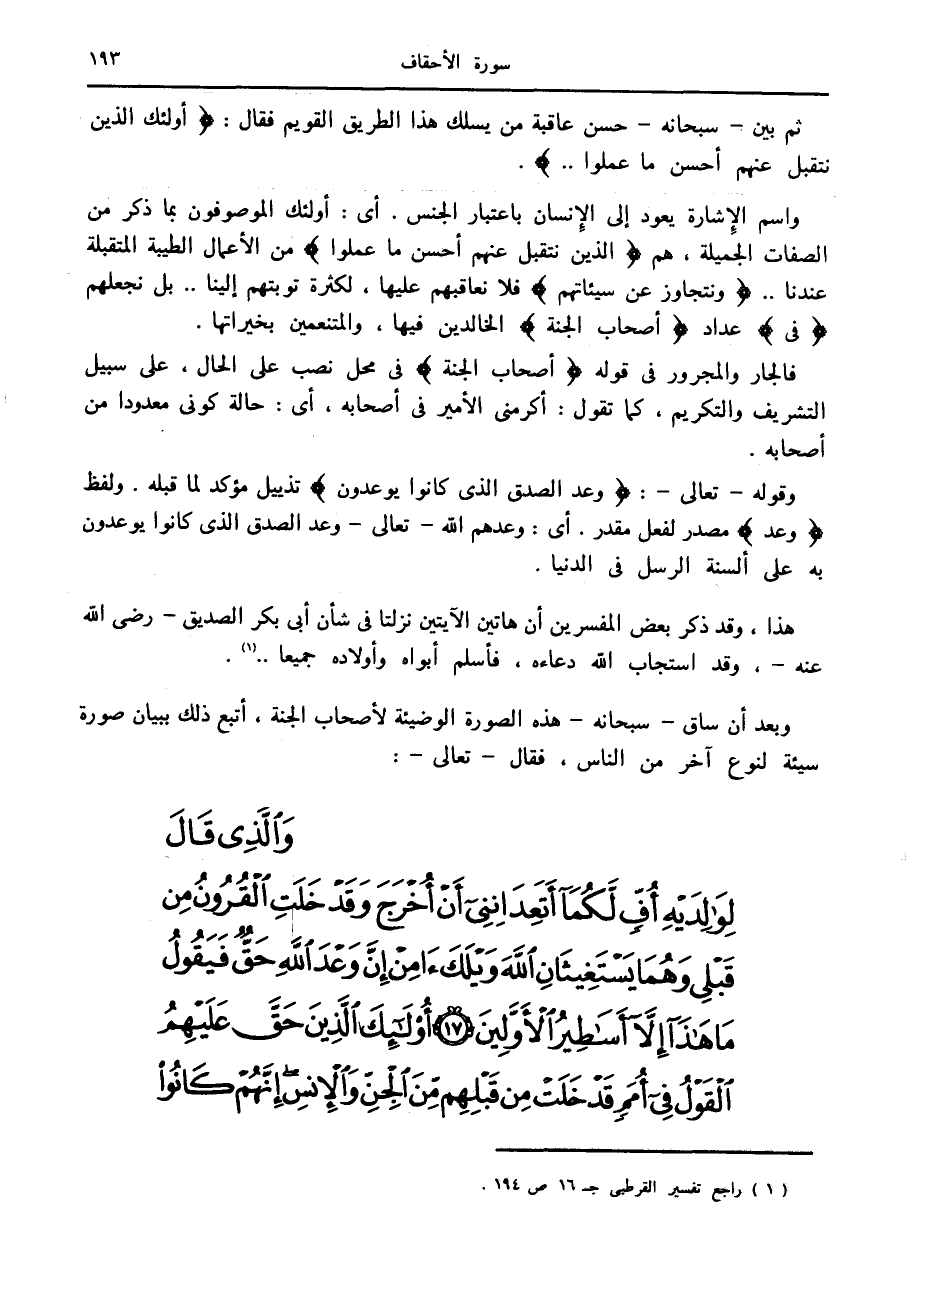 سورة الأحقاف ١٩٣
ثم بين – سبحانه – حسن عاقبة من يسلك هذا الطريق القويم فقال : ﴿ أولئك الذين
نتقبل عنهم أحسن ما عملوا .. ﴾ .
واسم الإشارة يعود إلى الإنسان باعتبار الجنس . أى : أولئك الموصوفون بما ذكر من
الصفات الجميلة ، هم ﴿ الذين نتقبل عنهم أحسن ما عملوا ﴾ من الأعمال الطيبة المتقبلة
عندنا .. ﴿ ونتجاوز عن سيئاتهم ﴾ فلا نعاقبهم عليها ، لكثرة توبتهم إلينا .. بل نجعلهم
﴿ فى ﴾ عداد ﴿ أصحاب الجنة ﴾ الخالدين فيها ، والمتنعمين بخيراتها .
فالجار والمجرور فى قوله ﴿ أصحاب الجنة ﴾ فى محل نصب على الحال ، على سبيل
التشريف والتكريم ، كما تقول : أكرمنى الأمير فى أصحابه ، أى : حالة كونى معدودا من
أصحابه .
وقوله – تعالى – : ﴿ وعد الصدق الذى كانوا يوعدون ﴾ تذييل مؤكد لما قبله . ولفظ
﴿ وعد ﴾ مصدر لفعل مقدر . أى : وعدهم الله – تعالى – وعد الصدق الذى كانوا يوعدون
به على ألسنة الرسل فى الدنيا .
هذا ، وقد ذكر بعض المفسرين أن هاتين الآيتين نزلتا فى شأن أبى بكر الصديق – رضى الله
عنه – ، وقد استجاب الله دعاءه ، فأسلم أبواه وأولاده جميعا ..(١) .
وبعد أن ساق – سبحانه – هذه الصورة الوضيئة لأصحاب الجنة ، أتبع ذلك ببيان صورة
سيئة لنوع آخر من الناس ، فقال – تعالى – :
وَٱلَّذِى قَالَ
لِوَٰلِدَيْهِ أُفٍّ لَّكُمَآ أَتَعِدَانِنِىٓ أَنْ أُخْرَجَ وَقَدْ خَلَتِ ٱلْقُرُونُ مِن
قَبْلِى وَهُمَا يَسْتَغِيثَانِ ٱللَّهَ وَيْلَكَ ءَامِنْ إِنَّ وَعْدَ ٱللَّهِ حَقٌّ فَيَقُولُ
مَا هَٰذَآ إِلَّآ أَسَٰطِيرُ ٱلْأَوَّلِينَ ﴿١٧﴾ أُو۟لَٰٓئِكَ ٱلَّذِينَ حَقَّ عَلَيْهِمُ
ٱلْقَوْلُ فِىٓ أُمَمٍ قَدْ خَلَتْ مِن قَبْلِهِم مِّنَ ٱلْجِنِّ وَٱلْإِنسِ ۖ إِنَّهُمْ كَانُوا۟
( ١ ) راجع تفسير القرطبى جـ ١٦ ص ١٩٤ .